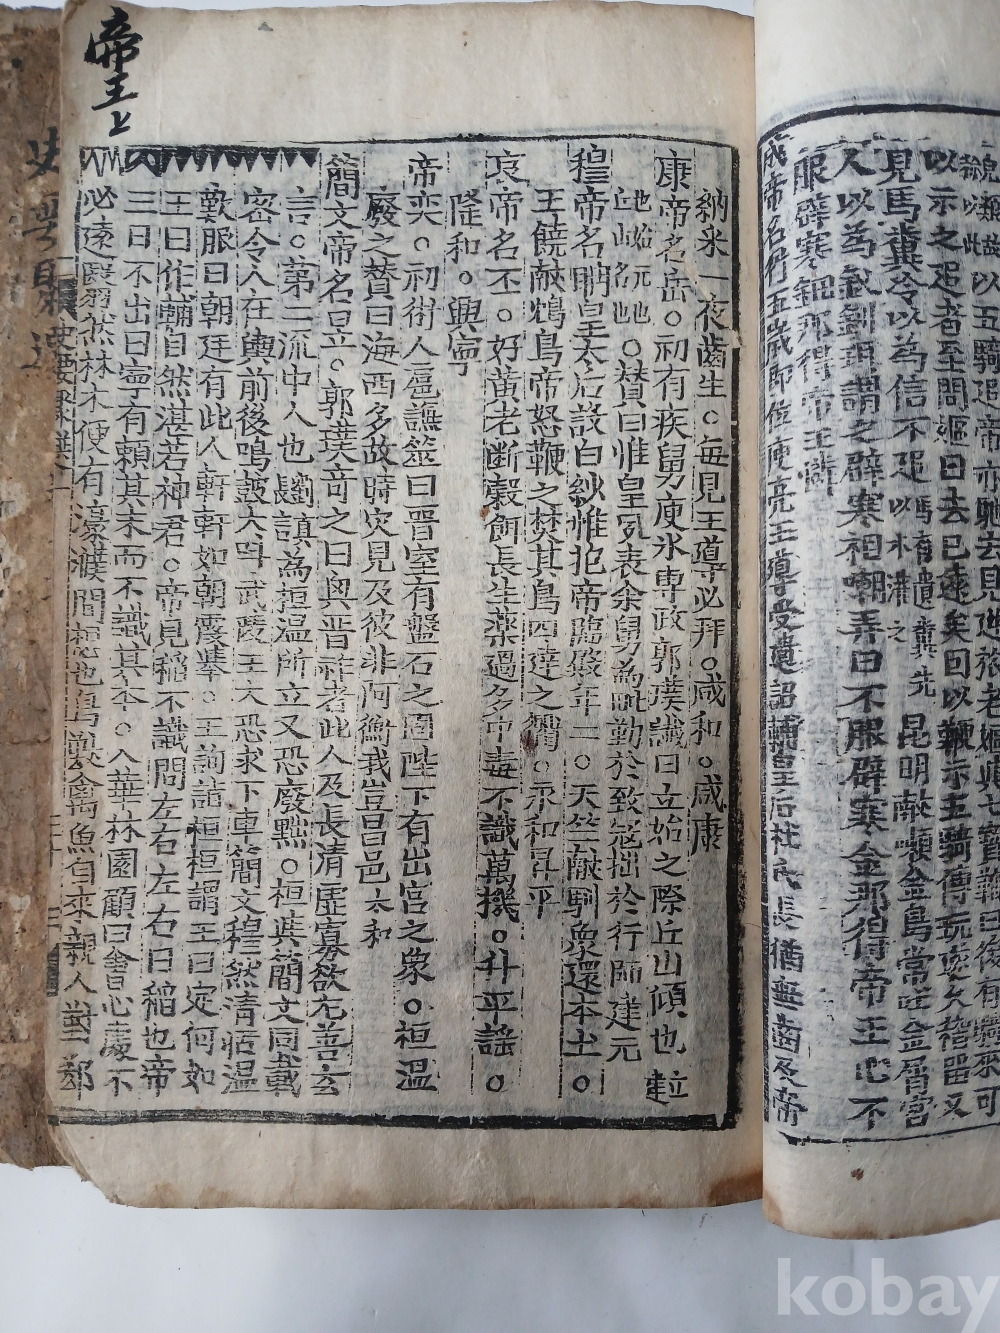 兔難故以五騎追帝亦馳去見逆旅老嫗與七寶鞭曰後有騎來可
以示之追者至問嫗曰去已遠矣因以鞭示五騎傳玩遂久稽留又
見馬糞冷以為信不追
以水灌之
馬有遺糞先
昆明獻嗽金鳥常吐金屑宮
人以為釵釧謂之辟寒相嘲弄曰不服辟寒金那得帝王心不
服辟寒鈿那得帝王憐
成帝名衍五歲即位庾亮王導受遺詔輔皇后杜氏長猶無齒及帝
納采一夜齒生○每見王導必拜○咸和○咸康
康帝名岳○初有疾舅庾氷専政郭璞讖曰立始之際丘山傾也
建元
岳名也○賛曰惟皇夙表余舅為毗勤於致寇拙於行師建元
穆帝名聃皇太后設白紗帷抱帝臨殿年二○天竺献馴象還本土○
王饒献鴆鳥帝怒鞭之焚其鳥四達之衢○永和昇平
哀帝名丕○好黄老断糓餌長生薬過多中毒不識萬機○升平謡○
隆和○興寧
帝奕○初術人扈謙筮曰晋室有盤石之固陛下有出宮之象○桓温
廢之賛曰海西多故時灾見及彼非阿衡我豈昌邑太和
簡文帝名昱○郭璞奇之曰興晋祚者此人及長清虛寡欲尤善玄
言○第二流中人也劉謓為桓温所立又恐廢黜○桓與簡文同載
密令人在輿前後鳴鼓大呌武陵王大恐求下車簡文穆然清恬温
歎服曰朝廷有此人軒軒如朝霞擧○王詢詣桓桓謂王曰定何如
王曰作輔自然湛若神君○帝見稲不識問左右左右曰稲也帝
三日不出曰寧有頼其末而不識其本○入華林園顧曰會心處不
必遠翳然林木便有濠濮間想也鳥獸禽魚自來親人對郗
帝王上